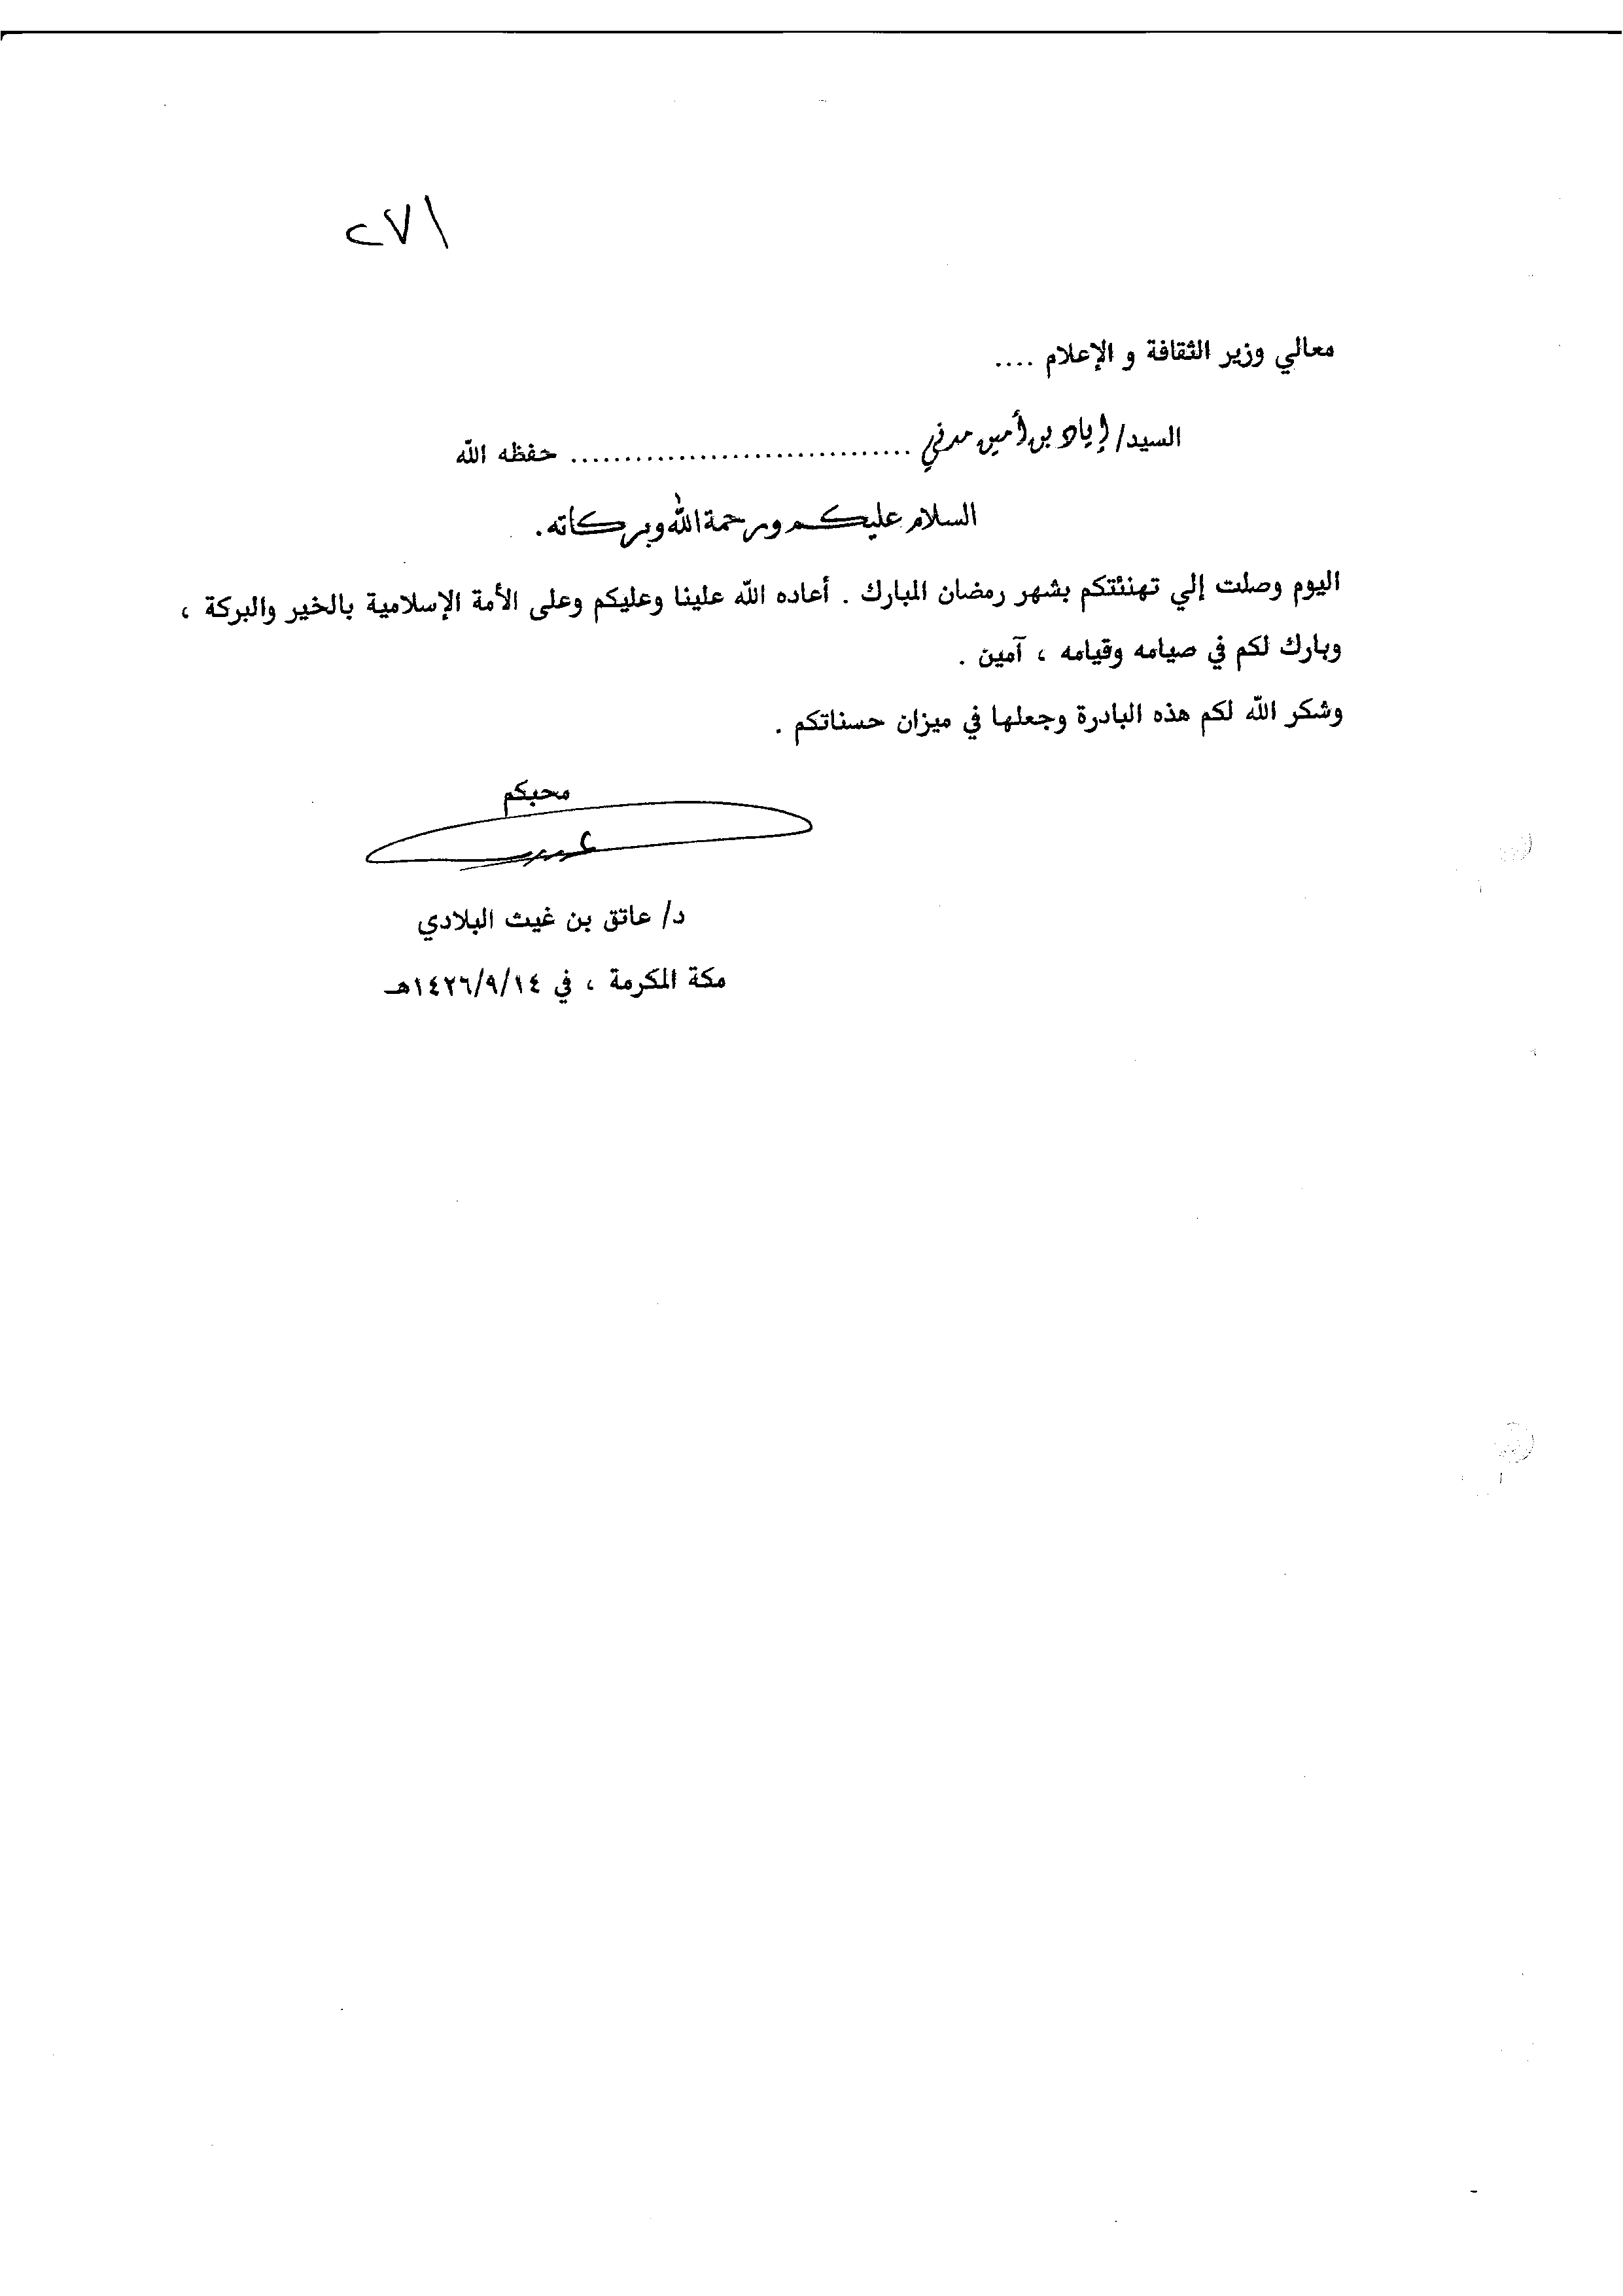 ٢٧١
معالي وزير الثقافة و الإعلام ....
السيد/ إياد بن أمين مدني ................................ حفظه الله
السلام عليكم ورحمة الله وبركاته.
اليوم وصلت إلي تهنئتكم بشهر رمضان المبارك . أعاده الله علينا وعليكم وعلى الأمة الإسلامية بالخير والبركة ،
وبارك لكم في صيامه وقيامه ، آمين .
وشكر الله لكم هذه البادرة وجعلها في ميزان حسناتكم .
محبكم
د/ عاتق بن غيث البلادي
مكة المكرمة ، في ١٤٢٦/٩/١٤هـ